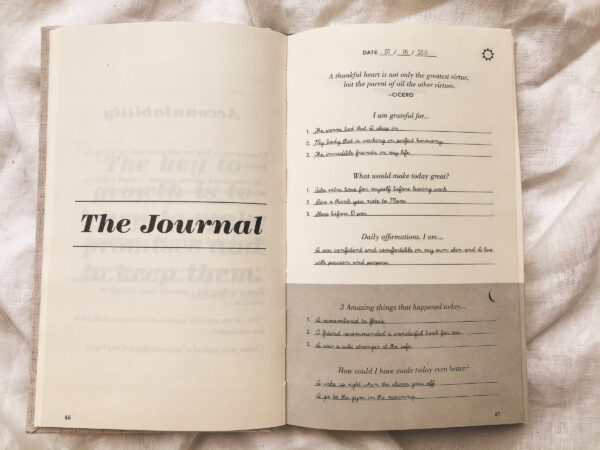 The Journal
46
DATE
A thankful heart is not only the greatest virtue,
but the parent of all the other virtues.
–CICERO
I am grateful for...
1. The warm bed that I sleep in
2. My body that is working in perfect harmony
3. The incredible friends in my life
What would make today great?
1. Take extra time for myself before leaving work
2. Give a thank you note to Mom
3. before pm
Daily affirmations. I am...
I am confident and comfortable in my own skin and I live
with passion and purpose
3 Amazing things that happened today...
1. I remembered to floss
2. A friend recommended a wonderful book for me
3. I saw a cute stranger at the cafe
How could I have made today even better?
I wake up right when the alarm goes off
I go to the gym in the morning
47